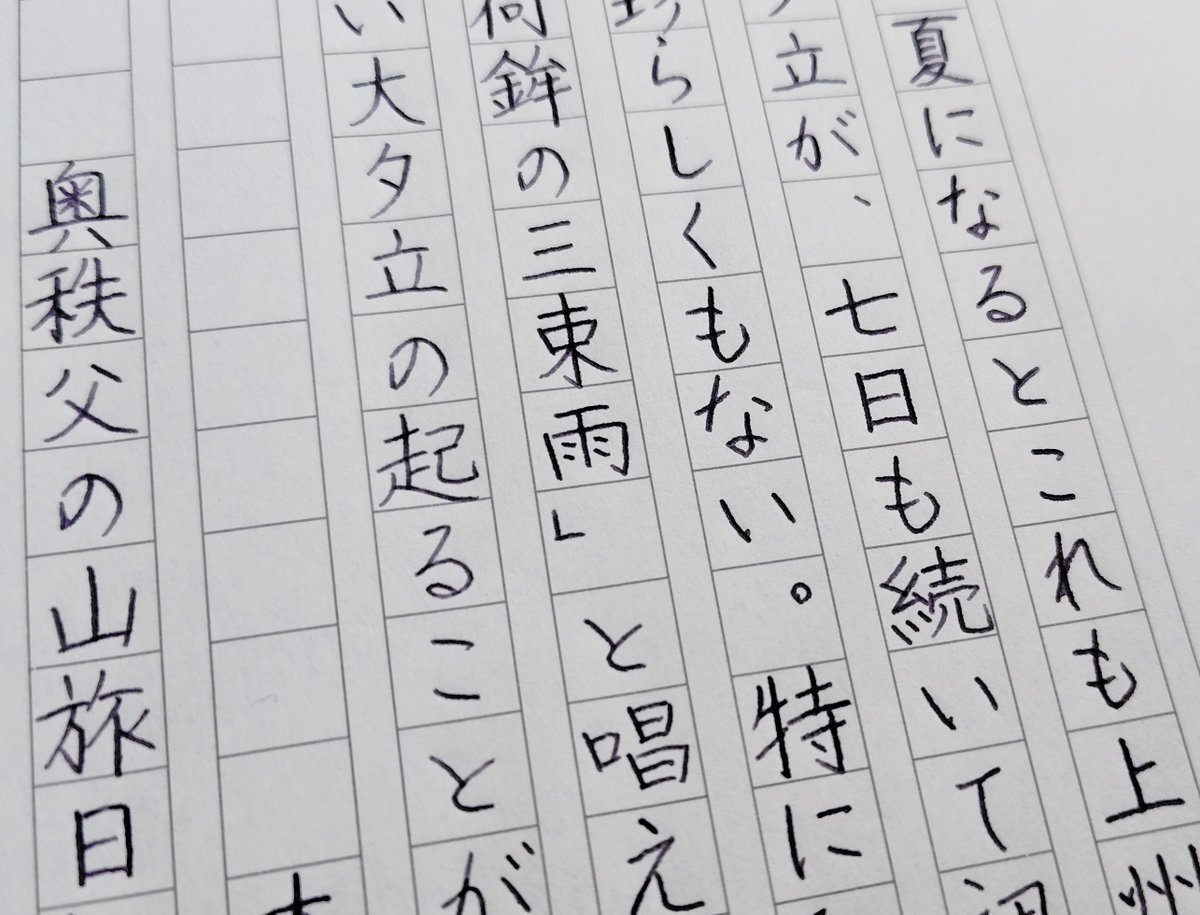 夏になるとこれも上州
立が、七日も続いて
らしくもない。特に
鉾の三束雨」と唱え
い大夕立の起ることが
奥秩父の山旅日